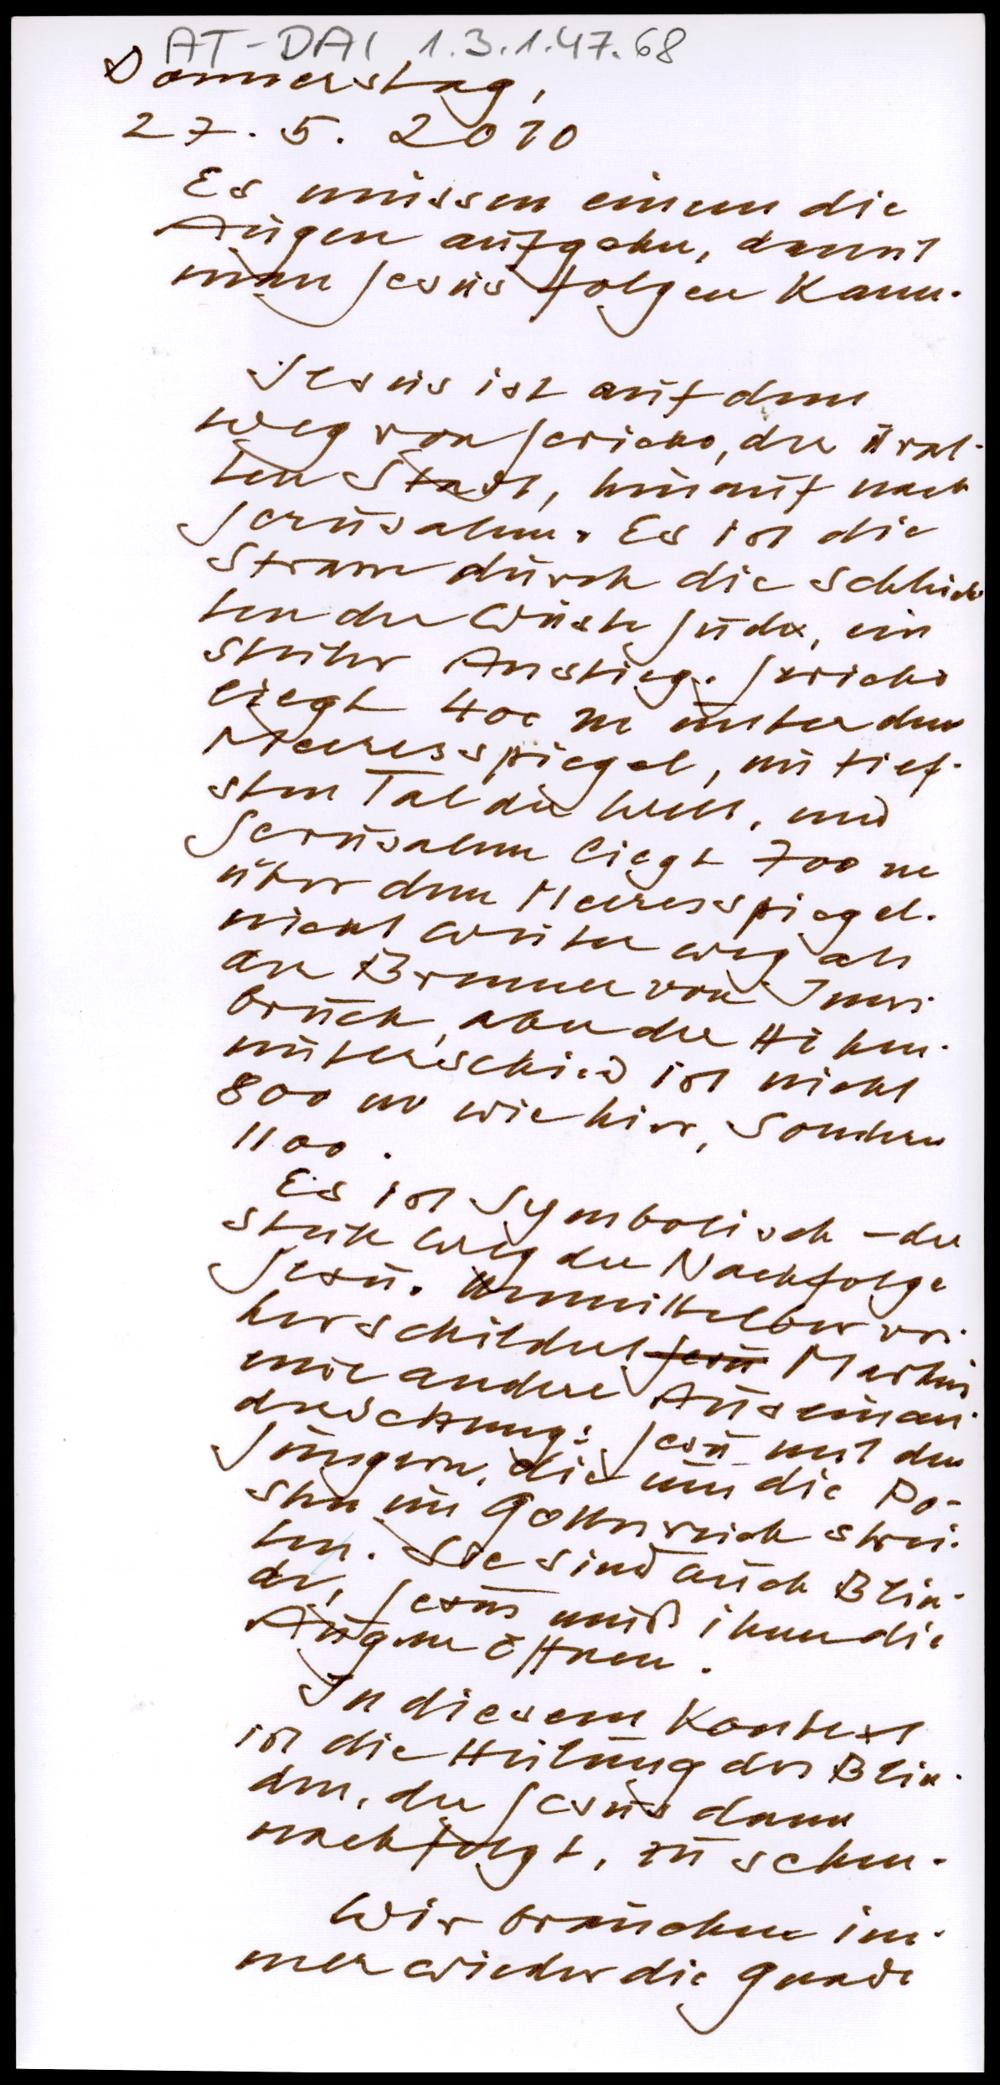 AT-DAI 1.3.1.47.68
Donnerstag,
27. 5. 2010
Es müssen einem die
Augen aufgehn, damit
man Jesus folgen kann.
Jesus ist auf dem
Weg von Jericho, der ural-
ten Stadt, hinauf nach
Jerusalem. Es ist die
Strasse durch die Schluch
ten der Wüste Juda, ein
steiler Anstieg. Jericho
liegt 400 m unter dem
Meeresspiegel, im tief-
sten Tal der Welt, und
Jerusalem liegt 700 m
über dem Meeresspiegel.
nicht weiter weg als
der Brenner von Inns-
bruck, aber der Höhen-
unterschied ist nicht
800 m wie hier, sondern
1100.
Es ist symbolisch - der
steile Weg der Nachfolge
Jesu. Unmittelbar vor-
her schildert Jesu Markus
eine andere Auseinan-
dersetzung: Jesu mit den
Jüngern, die um die Po-
sten im Gottesreich strei-
ten. Sie sind auch Blin-
de, Jesus muß ihnen die
Augen öffnen.
In diesem Kontext
ist die Heilung des Blin-
den, der Jesus dann
nachfolgt, zu sehen.
Wir brauchen im-
mer wieder die Gnade